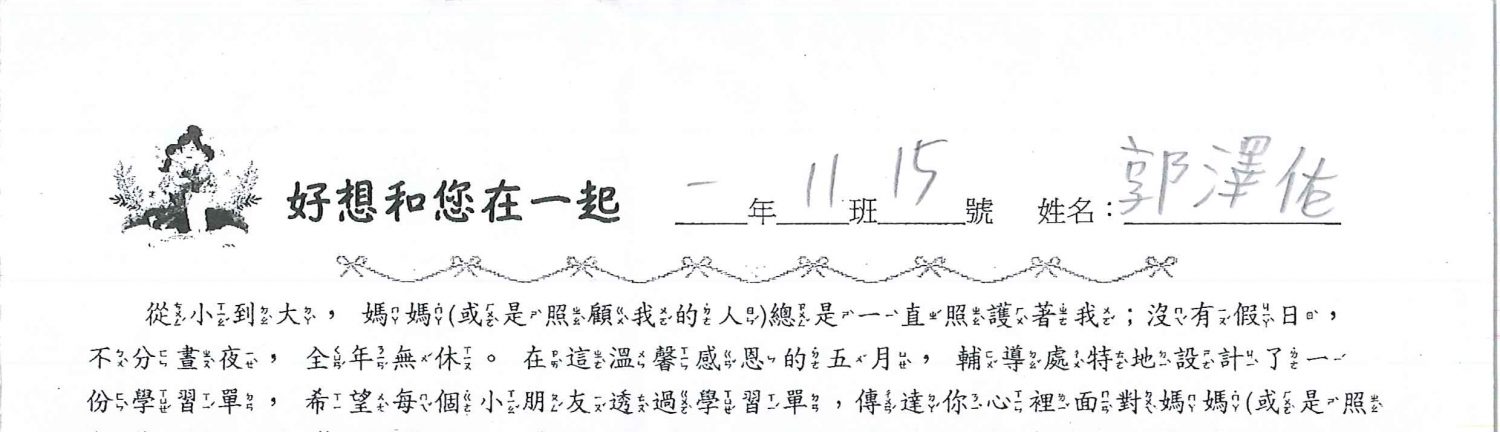 好想和您在一起 一年11班15號 姓名：郭澤佑
從小到大，媽媽(或是照顧我的人)總是一直照護著我；沒有假日，
不分晝夜，全年無休。在這溫馨感恩的五月，輔導處特地設計了一
份學習單，希望每個小朋友透過學習單，傳達你心裡面對媽媽(或是照